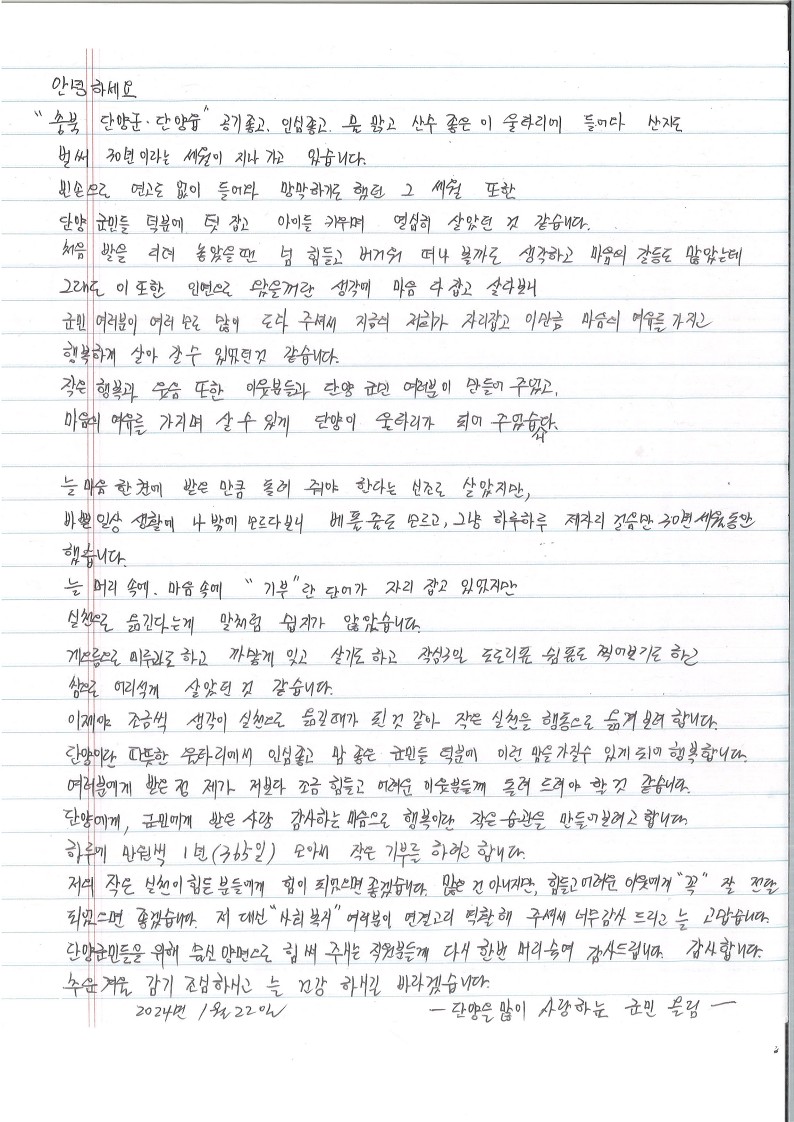 안녕하세요
"충북 단양군·단양읍" 공기좋고, 인심좋고, 물 맑고 산수 좋은 이 울타리에 들어와 산지도
벌써 30년이라는 세월이 지나가고 있습니다.
빈손으로 연고도 없이 들어와 망막하기도 했던 그 세월 또한
단양 군민들 덕분에 텃 잡고 아이들 키우며 열심히 살았던 것 같습니다.
처음 발을 디뎌 놓았을땐 넘 힘들고 버거워 떠나 볼까도 생각하고 마음의 갈등도 많았는데
그래도 이 또한 인연으로 왔을꺼란 생각에 마음 다잡고 살다보니
군민 여러분이 여러모로 많이 도와 주셔서 지금의 저희가 자리잡고 이만큼 마음의 여유를 가지고
행복하게 살아 갈 수 있었던것 같습니다.
작은 행복과 웃음 또한 이웃분들과 단양 군민 여러분이 만들어 주었고,
마음의 여유를 가지며 살 수 있게 단양이 울타리가 되어 주었습니다.

늘 마음 한켠에 받은 만큼 돌려 줘야 한다는 신조로 살았지만,
바쁜일상 생활에 나 밖에 모르다보니 베풀줄도 모르고, 그냥 하루하루 제자리 걸음만 30년 세월동안
했습니다.
늘 머리 속에. 마음 속에 "기부"란 단어가 자리 잡고 있었지만
실천으로 옮긴다는게 말처럼 쉽지가 않았습니다.
게으름으로 미루기도 하고 까맣게 잊고 살기도 하고 작심3일 도도리표 쉼표도 찍어보기도 하고
참으로 어리석게 살았던 것 같습니다.
이제야 조금씩 생각이 실천으로 옮길때가 된것 같아 작은 실천을 행동으로 옮겨 보려 합니다.
단양이란 따뜻한 울타리에서 인심좋고 맘 좋은 군민들 덕분에 이런 맘을 가질수 있게 되어 행복합니다.
여러분에게 받은 정 제가 저보다 조금 힘들고 어려운 이웃분들께 돌려 드려야 할 것 같습니다.
단양에게, 군민에게 받은 사랑 감사하는 마음으로 행복이란 작은 습관을 만들어보려고 합니다.
하루에 만원씩 1년(365일) 모아서 작은 기부를 하려고 합니다.
저의 작은 실천이 힘든 분들에게 힘이 되었으면 좋겠습니다. 많은 건 아니지만, 힘들고 어려운 이웃에게 "꼭" 잘 전달
되었으면 좋겠습니다. 저 대신 "사회 복지" 여러분이 연결고리 역할해 주셔서 너무감사 드리고 늘 고맙습니다.
단양군민들을 위해 물심 양면으로 힘 써 주시는 직원분들께 다시 한번 머리숙여 감사드립니다. 감사합니다.
추운 겨울 감기 조심하시고 늘 건강 하시길 바라겠습니다.
2024년 1월 22일 - 단양을 많이 사랑하는 군민 올림 -